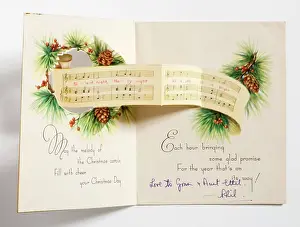 May the melody of
the Christmas carols
Fill with cheer
your Christmas Day
Each hour bringing
some glad promise
For the year that's on
its way!
Love to Gram & Aunt Ethel
Phil